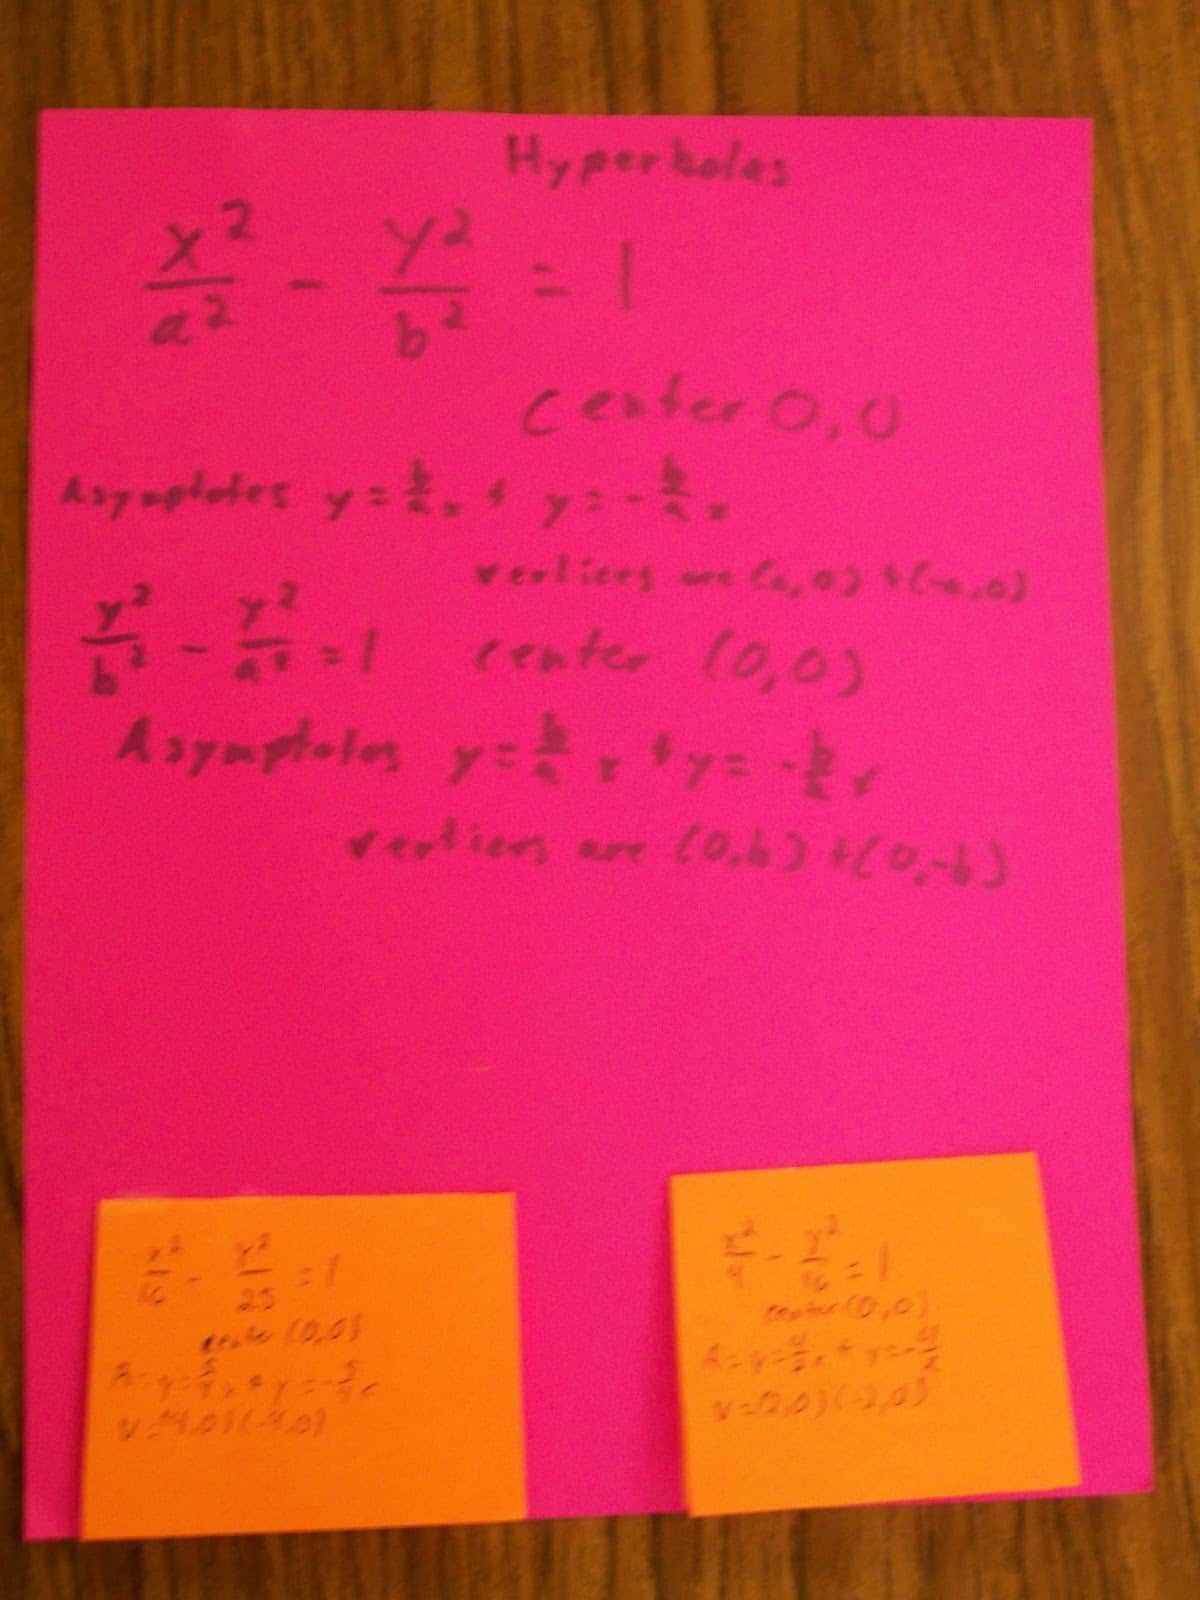 Hyperbolas
x²/a² - y²/b² = 1
Center 0,0
Asymptotes y = b/a x + y = - b/a x
vertices are (a,0) + (-a,0)
y²/b² - y²/a² = 1 center (0,0)
Asymptotes y = b/a x + y = - b/a x
vertices are (0,b) + (0,-b)
x²/16 - y²/25 = 1
center (0,0)
A = y = 5/4 x + y = - 5/4 x
V = (4,0) (-4,0)
x²/4 - y²/16 = 1
center (0,0)
A = y = 4/2 x + y = -
V = (2,0) (-2,0)